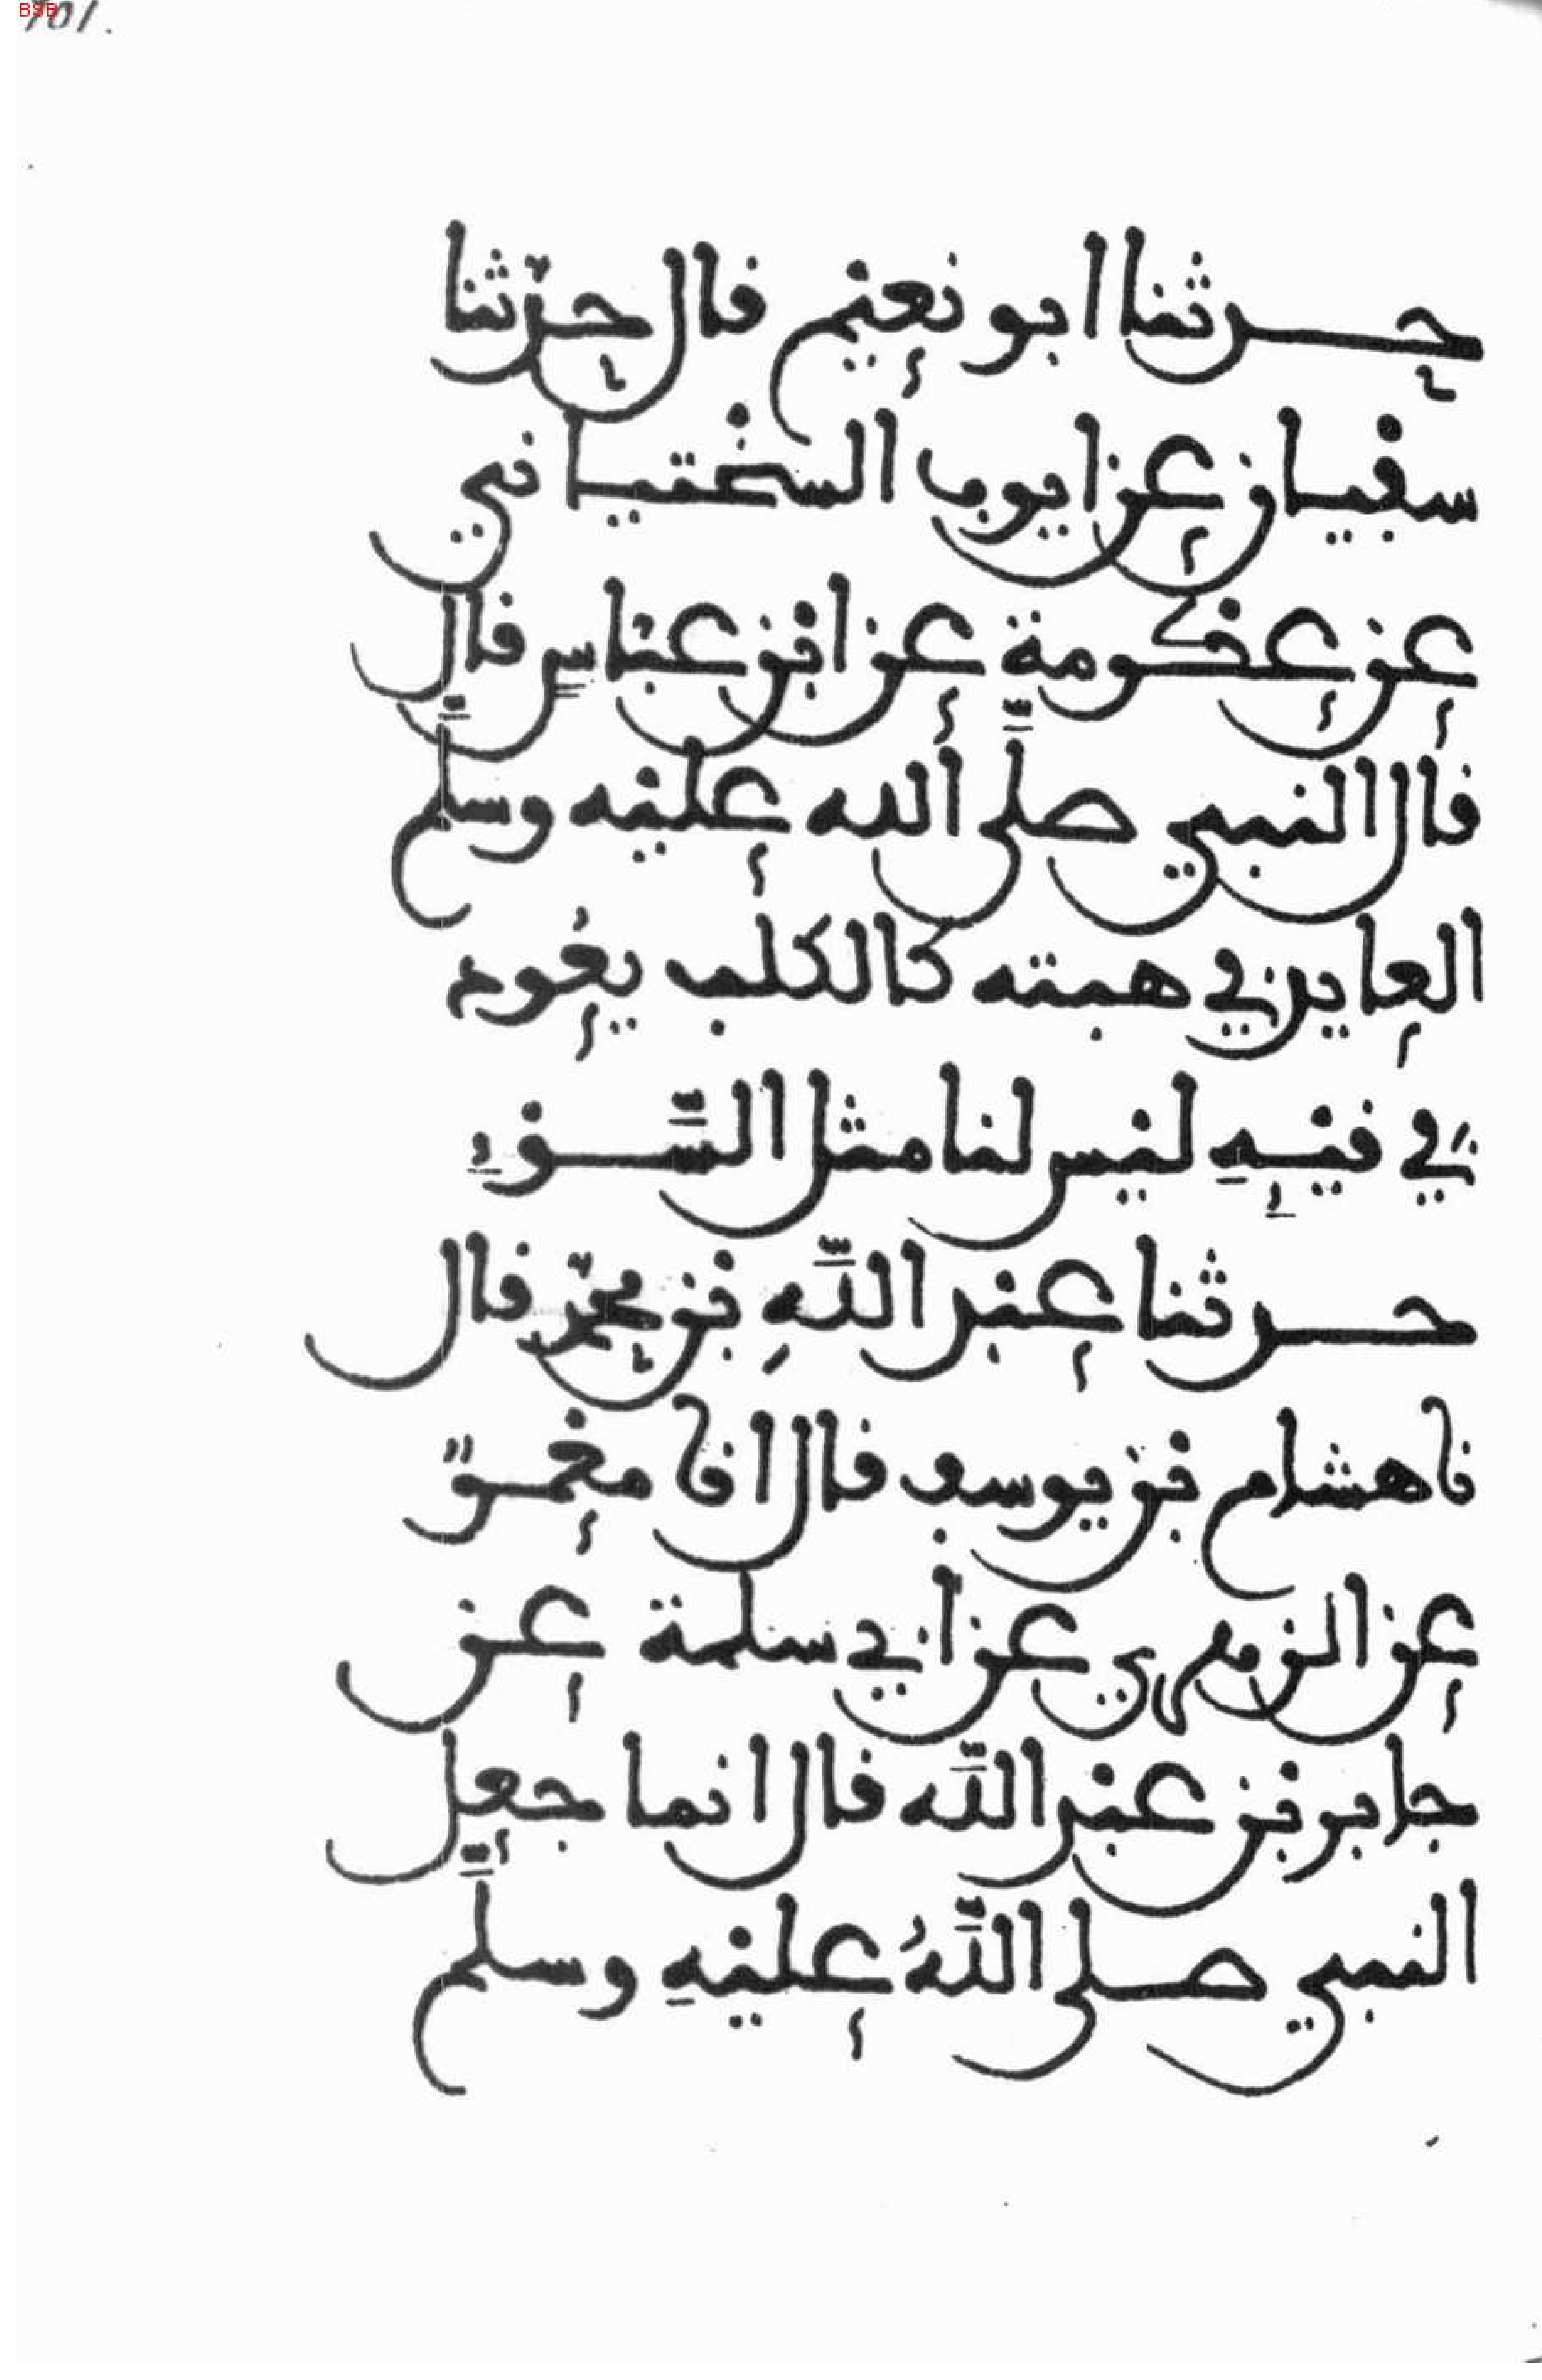 BSB
101.
حدثنا ابو نعيم قال حدثنا
سفيان عن ايوب السختياني
عن عكرمة عن ابن عباسٍ قال
قال النبي صلَّى الله عليه وسلَّم
العايد في هبته كالكلب يعود
في قيـهِ ليس لنا مثل السَّـوءِ
حدثنا عبد اللَّهِ بن محمد قال
نا هشام بن يوسف قال انا معمرٌ
عن الزهري عن ابي سلمة عن
جابر بن عبد اللَّه قال انما جعل
النبي صلى اللَّهُ عليهِ وسلَّم